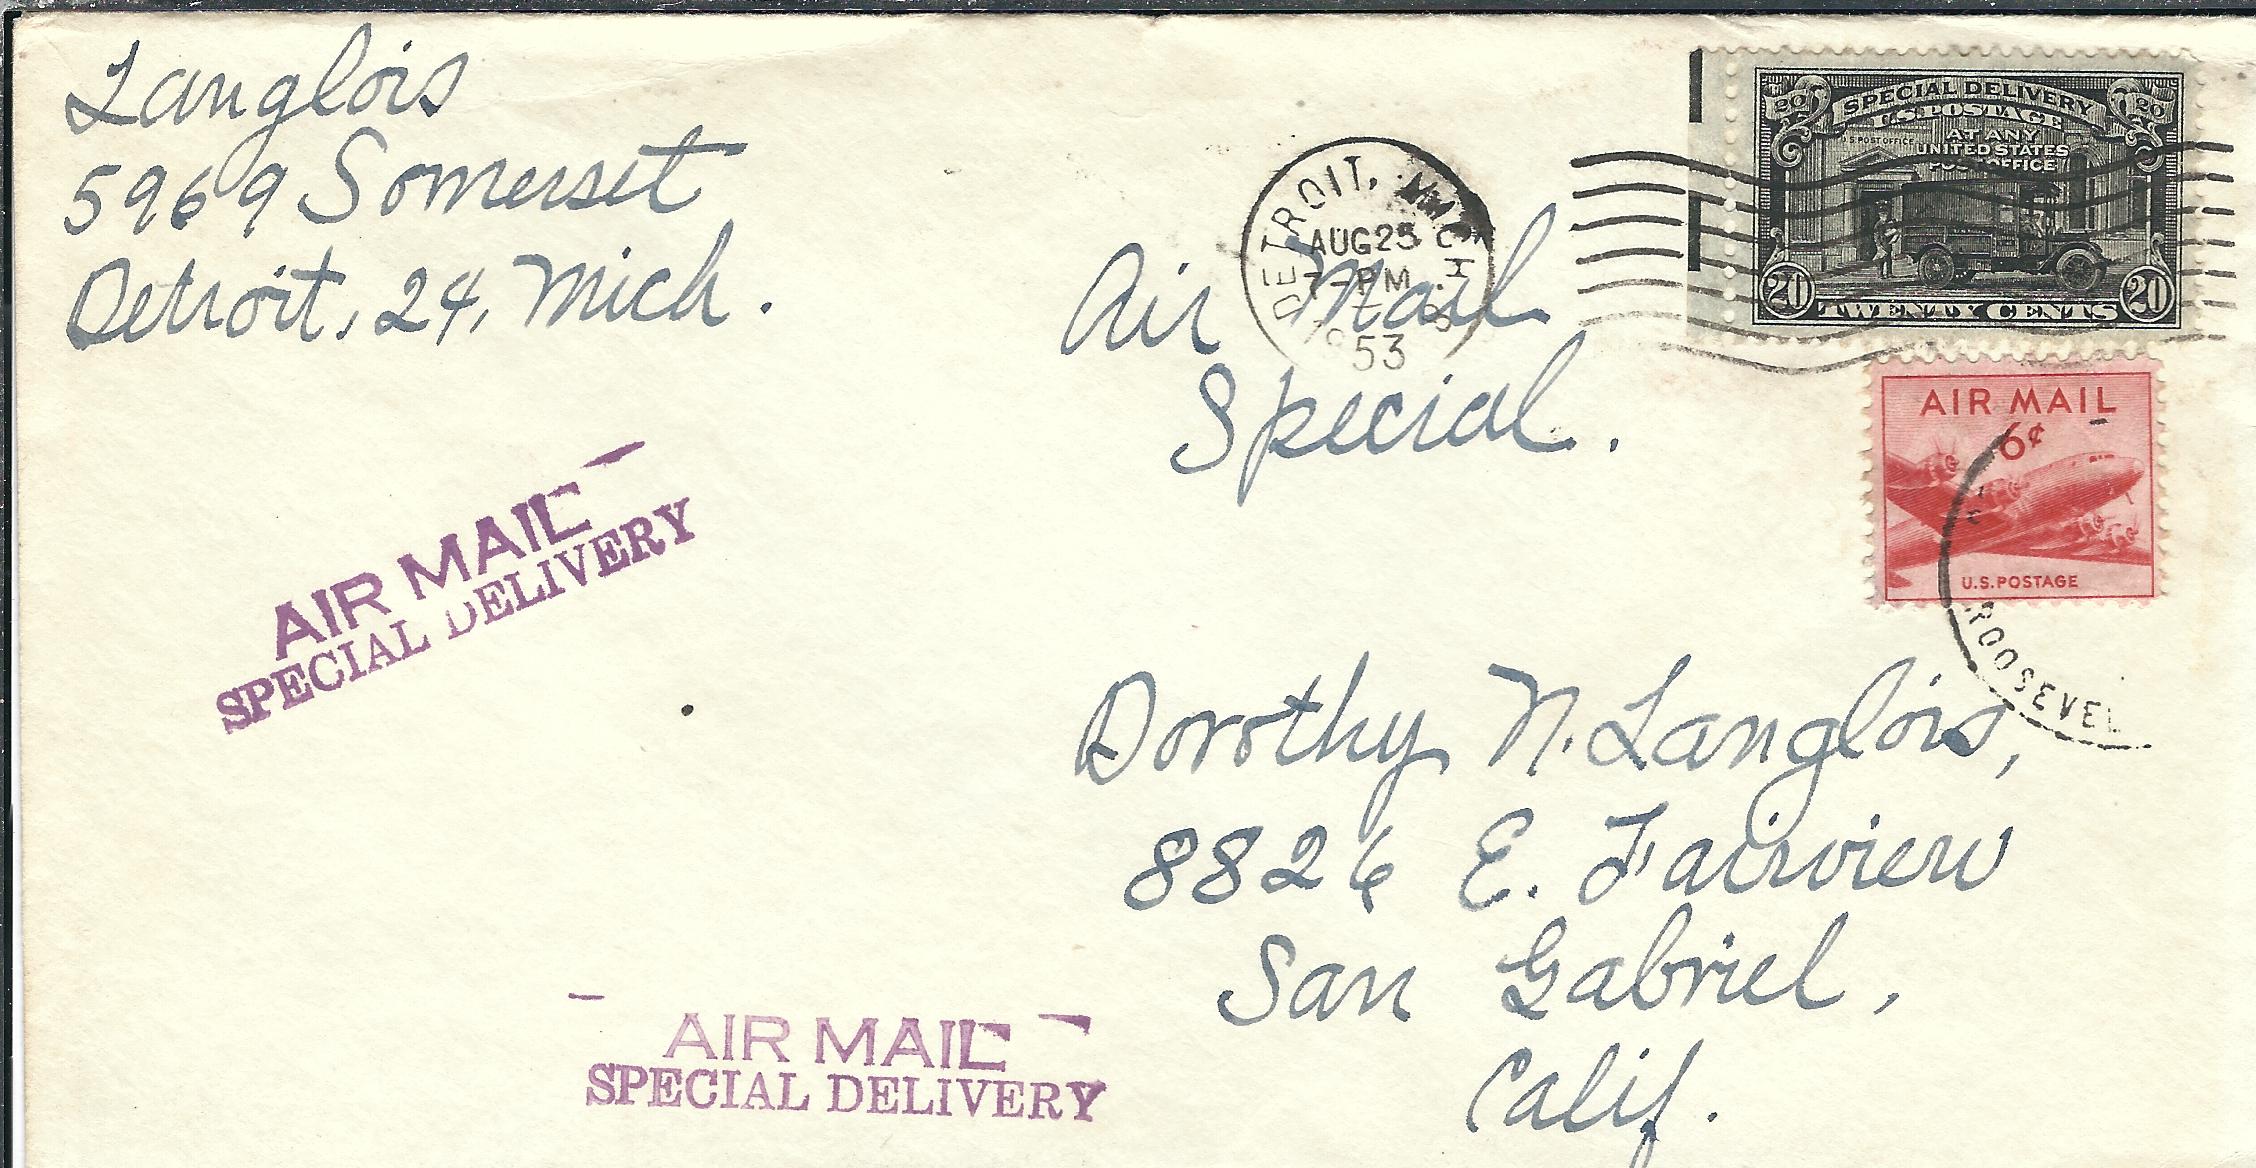 Langlois
5969 Somerset
Detroit, 24, Mich.
Air Mail
Special.
DETROIT, MICH.
AUG 25
7 - PM
1953
20 SPECIAL DELIVERY 20
U.S. POSTAGE
AT ANY
UNITED STATES
POST OFFICE
U.S POST OFFICE
20 TWENTY CENTS 20
AIR MAIL
6¢
U.S. POSTAGE
ROOSEVEL
AIR MAIL
SPECIAL DELIVERY
Dorothy N. Langlois,
8826 E. Fairview
San Gabriel,
Calif.
AIR MAIL
SPECIAL DELIVERY